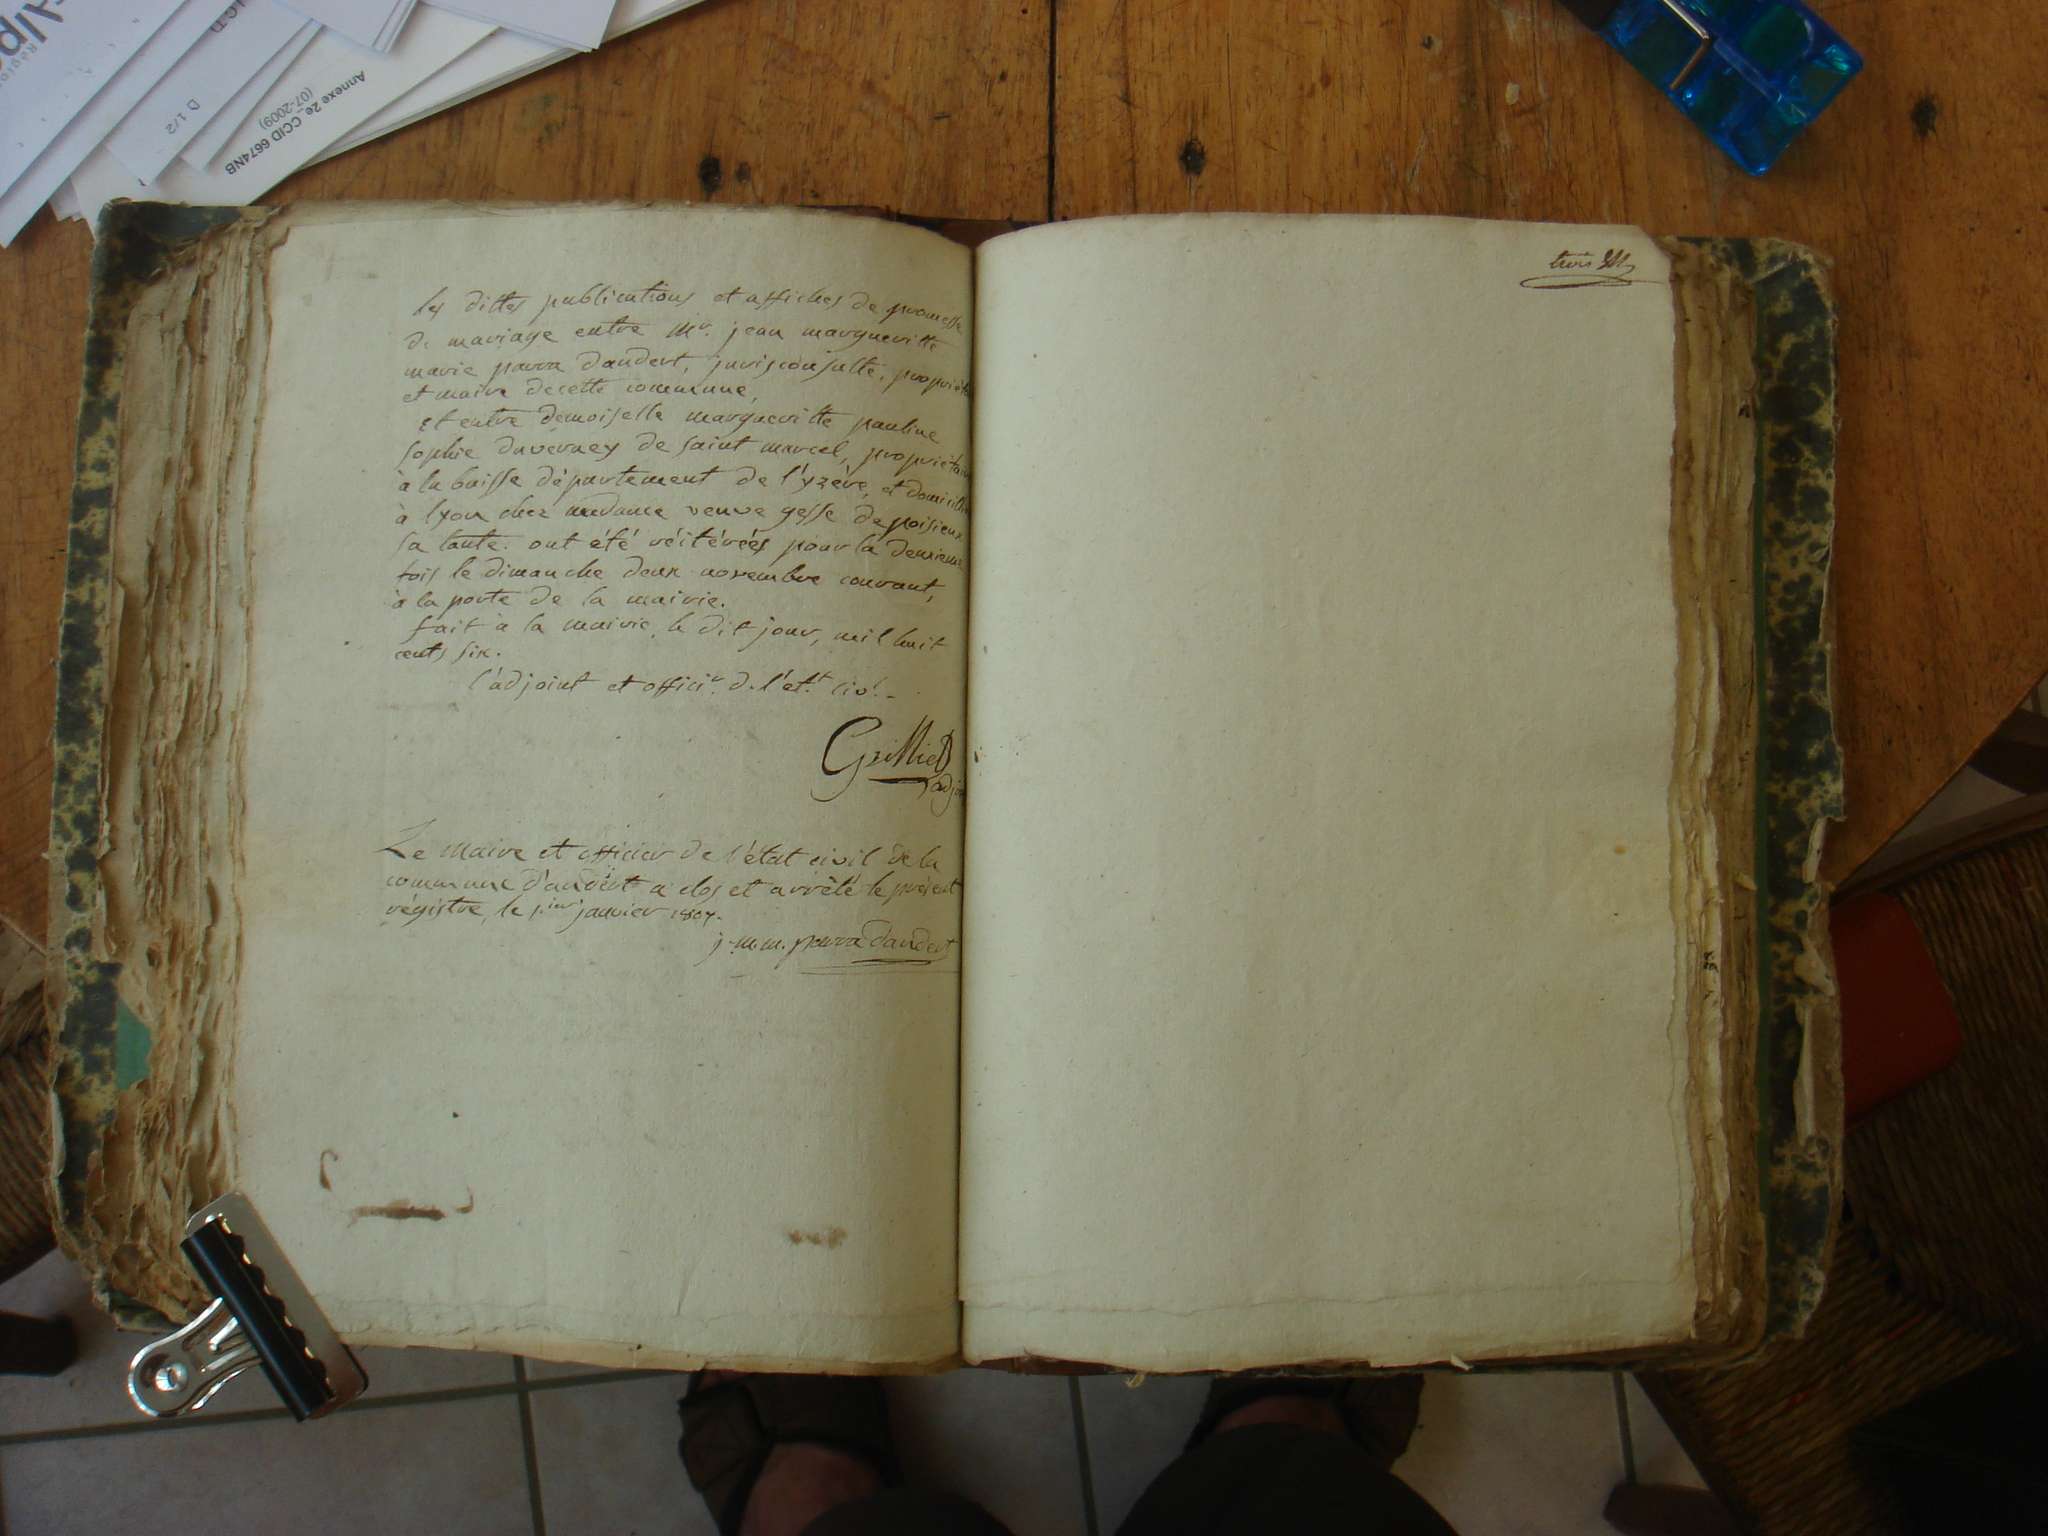 Annexe 2e_CCID 6674NB
(07-2009)
D 1/2
trois
les dittes publications et affiches de promesse
de mariage entre Mr. jean margueritte
marie parra dandert, jurisconsulte, propriéta
et maire decette commune,
et entre demoiselle margueritte pauline
sophie duverney de saint marcel, propriétaire
à la baisse département de l'yzère, et domicilié
à lyon chez madame veuve gesse de poisieux
sa tante. ont été réitérées pour la deuxieme
fois le dimanche deux novembre courant,
à la porte de la mairie.
fait a la mairie, le dit jour, mil huit
cents six.
l'adjoint et officir. de l'ett. civl.
Grilliet
adj
Le maire et officier de l'état civil de la
commune d'andert a clos et arrêté le présent
régistre, le pier janvier 1807.
j. m. m. parra dandert